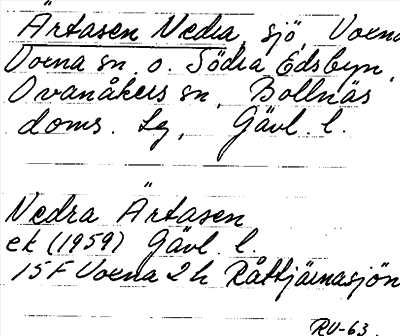 Ärtasen Nedra sjö Voxna
Voxna sn o. Södra Edsbyn,
Ovanåkers sn, Bollnäs
doms. lg, Gävl. l.
Nedra Ärtasen
ek (1959) Gävl l.
15F Voxna 2h Råttjärnasjön
RU-63.